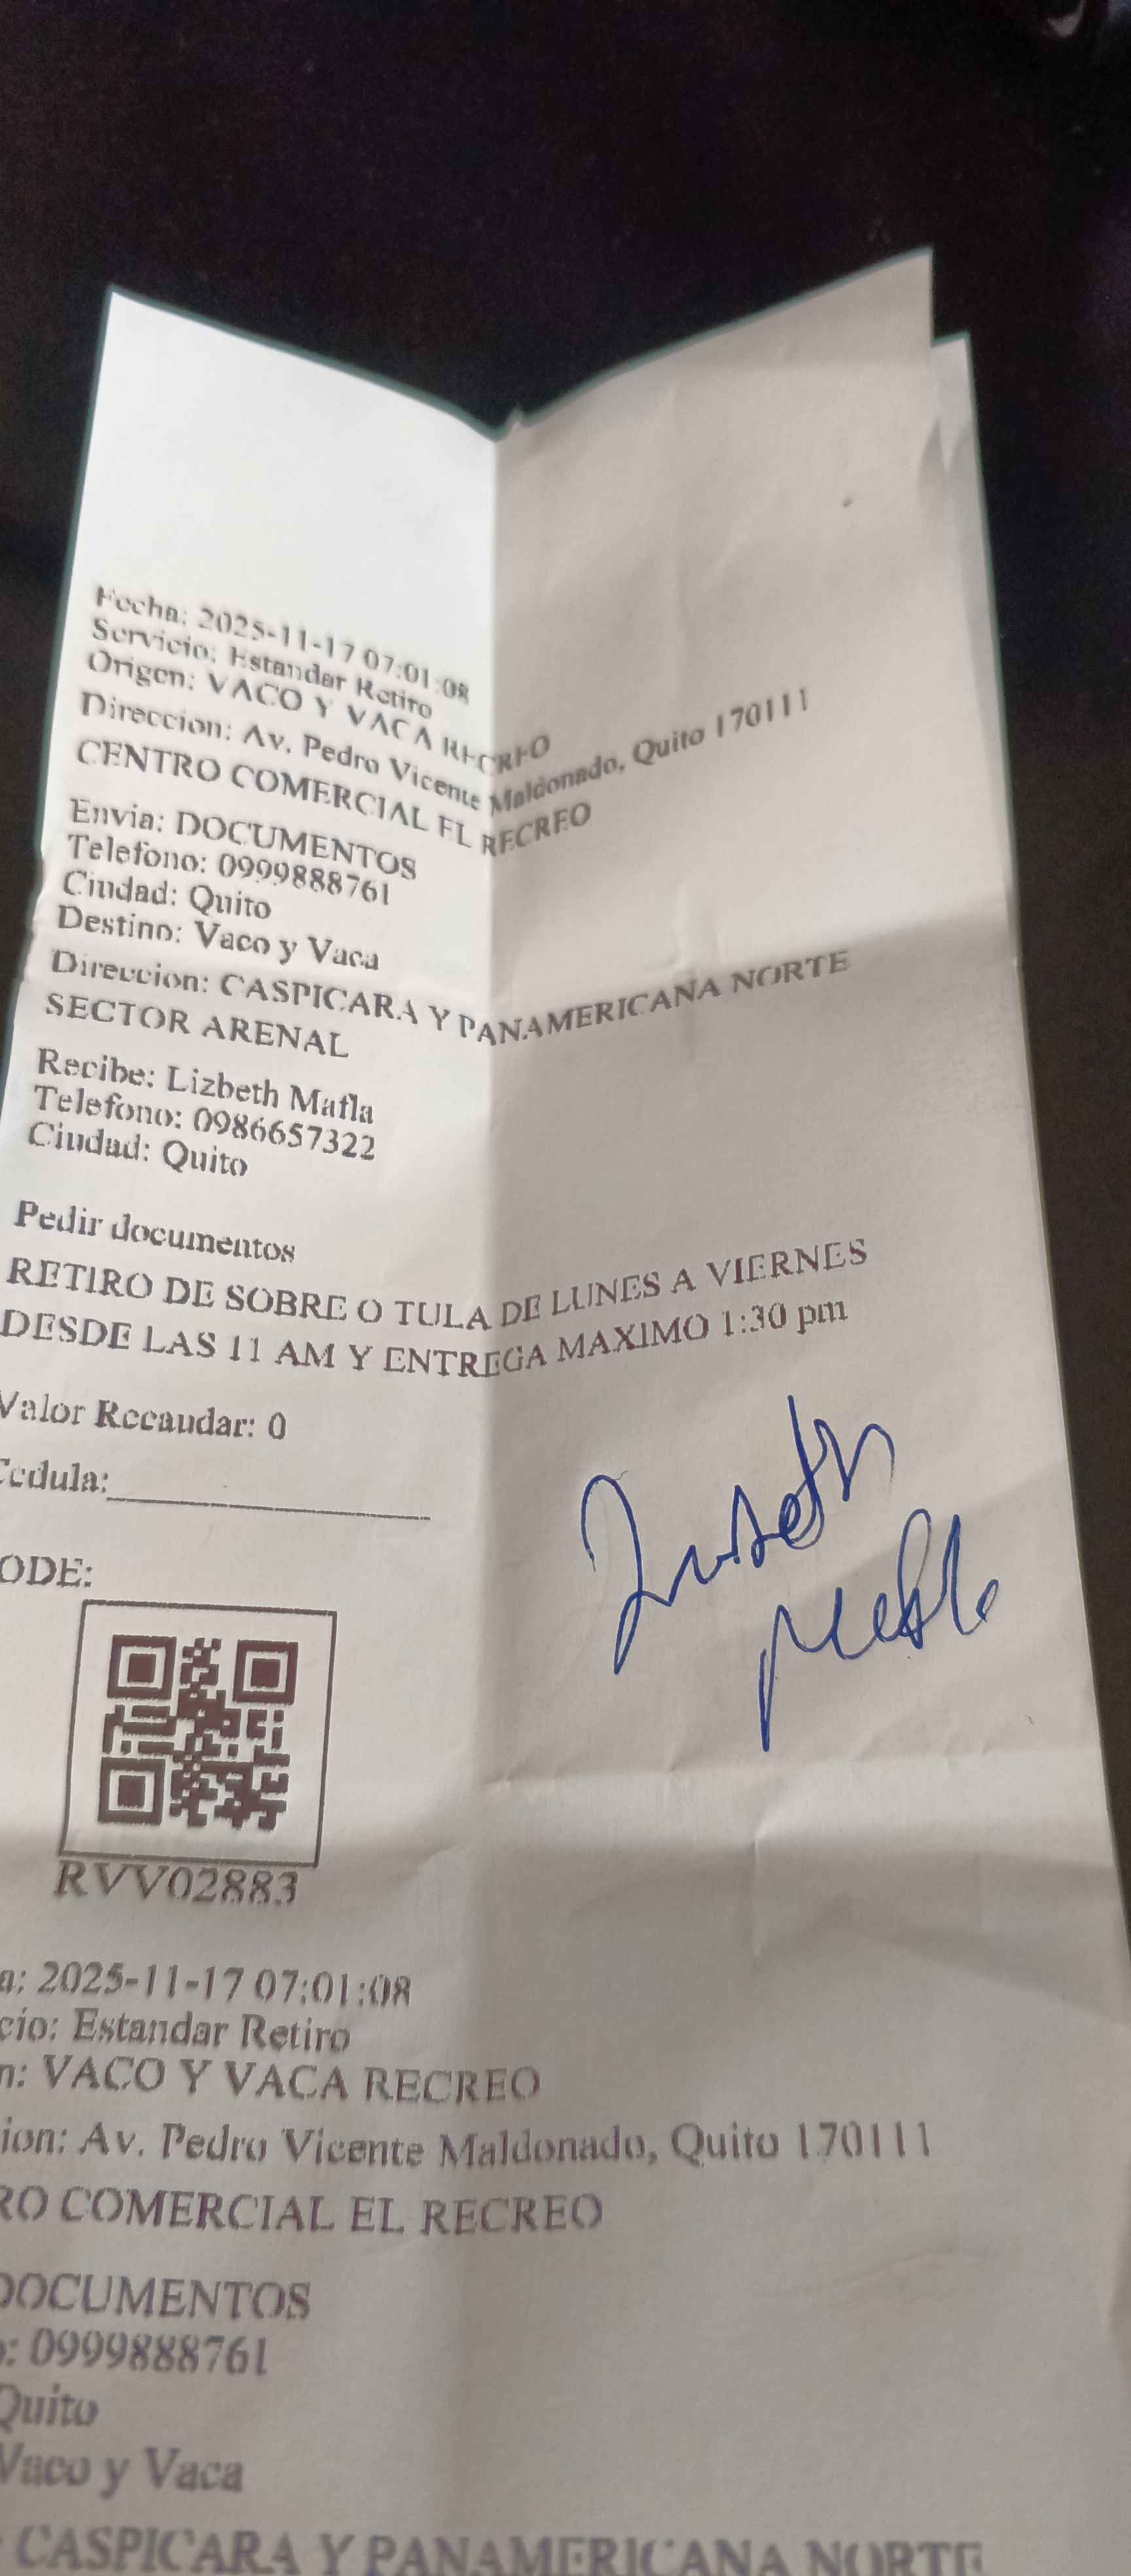 Fecha: 2025-11-17 07:01:08
Servicio: Estandar Retiro
Origen: VACO Y VACA RECREO
Direccion: Av. Pedro Vicente Maldonado, Quito 170111
CENTRO COMERCIAL EL RECREO
Envia: DOCUMENTOS
Telefono: 0999888761
Ciudad: Quito
Destino: Vaco y Vaca
Direccion: CASPICARA Y PANAMERICANA NORTE
SECTOR ARENAL
Recibe: Lizbeth Mafla
Telefono: 0986657322
Ciudad: Quito
Pedir documentos
RETIRO DE SOBRE O TULA DE LUNES A VIERNES
DESDE LAS 11 AM Y ENTREGA MAXIMO 1:30 pm
Valor Recaudar: 0
Cedula:
ODE:
RVV02883
a: 2025-11-17 07:01:08
cio: Estandar Retiro
n: VACO Y VACA RECREO
ion: Av. Pedro Vicente Maldonado, Quito 170111
RO COMERCIAL EL RECREO
DOCUMENTOS
o: 0999888761
Quito
Vaco y Vaca
: CASPICARA Y PANAMERICANA NORTE